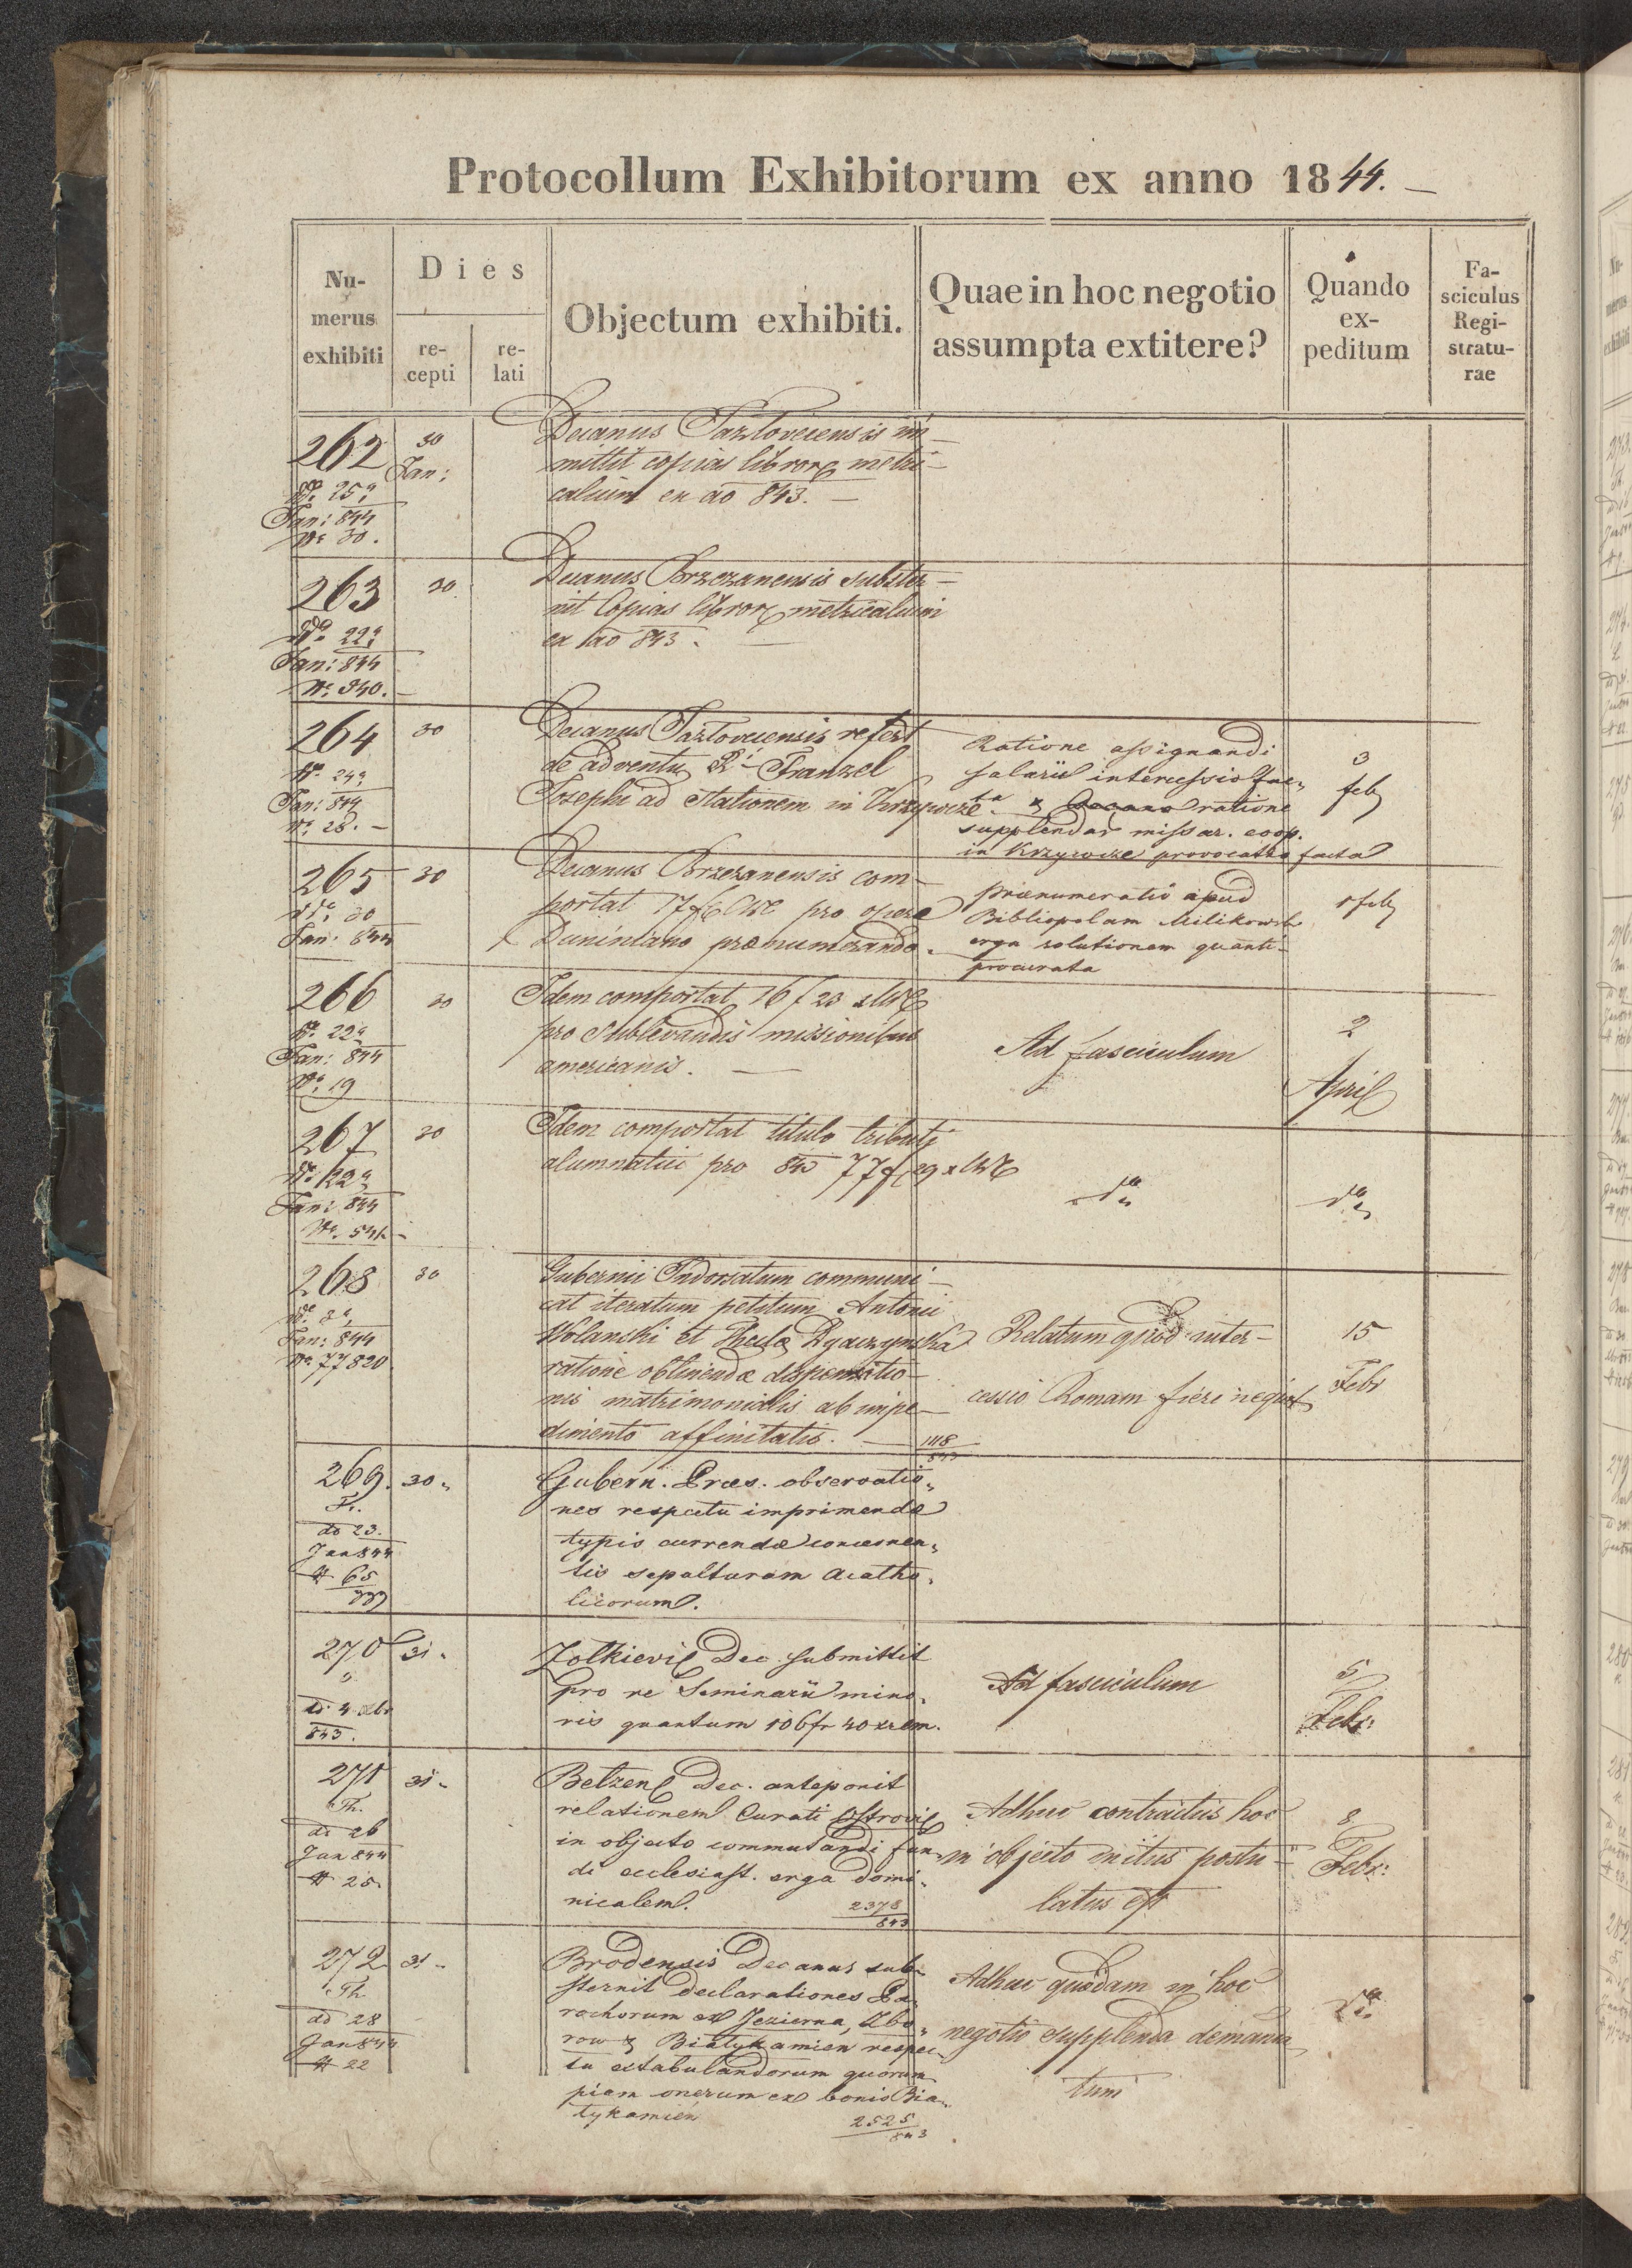 Protocollum Exhibitorum ex anno 1844. —
Nu-
merus
exhibiti
Dies
re-
cepti
re-
lati
Objectum exhibiti.
Quae in hoc negotio
assumpta extitere?
Quando
ex-
peditum
Fa-
sciculus
Regi-
stratu-
rae
262
30
Jan:
25a
Jan: 844
Nr 30.
Decanus Jazloveciensis im-
mittit copias libror metri-
calium ex ao 843. —
263
30
22a
Jan: 844
Nr. 340. —
Decanus Brzezanensis subster-
nit Copias libror metricalium
ex ao 843. —
264
30
24a
Jan: 844
Nr. 28. —
Decanus Jazloveciensis refert
de adventu Ri Franzel
Josephi ad Stationem in Krzywcze
Ratione assignandi
salarii intercessio fac-
ta & ratione
supplendar missar. coop.
in Krzywcze provocatio facta
3
feb
265
30
30
Jan: 844
Decanus Brzezanensis com-
portat 17 f CM pro opere
Duniniano prænumerando.
prænumeratio apud
Bibliopolam Milikowski
erga solutionem quanti-
procurata
1 feb
266
30
22a
Jan: 844
Nr. 19
Idem comportat 16 f 23 x CM
pro sublevandis missionibus
americanis. —
Ad fasciculum
2
April
267
30
22a
Jan: 844
Idem comportat titulo tributi
alumnatici pro 843 77 f 29 x CM
da
da
268
30
Jan: 844
Nr. 77820
Gubernii Indorsatum communi-
cat iteratum petitum Antonii
Wolanski et
ratione obtinendæ dispensatio-
nis matrimonialis ab impe-
dimento affinitatis. —
1118
843
Relatum quod inter-
cessio Romam fieri nequit
15
Febr
269.
30 „
dd 23.
Jan 844
# 65
Gubern. Præs. observatio„
nes respectu imprimendæ
typis currendæ concernen„
tis sepulturam acatho„
licorum.
270
31 „
dd 4 Xbr
843.
Zolkievi Dec. submittit
pro re Seminarii mino„
ris quantum 106 fr 40 xr CM.
Ad fasciculum
5
Febr:
271
31 „
Th.
dd 26
Jan 844
# 25.
Belzen Dec. anteponit
relationem Curati Ostrovi
in objecto commutandi fun„
di ecclesiast. erga domi„
nicalem.
2378
843
Adhuc contractus hoc
in objecto initus postu-
latus est
8
Febr:
272
31 „
Th
dd 28
Jan 844
# 22
Brodensis Decanus sub„
sternit declarationes Pa„
rochorum ex Jezierna, Zbo„
row & Białykamien respec„
tu extabulandorum quorum„
piam onerum ex bonis Bia„
łykamień
2525
843
Adhuc quædam in hoc
negotio supplenda demanda
tum
da